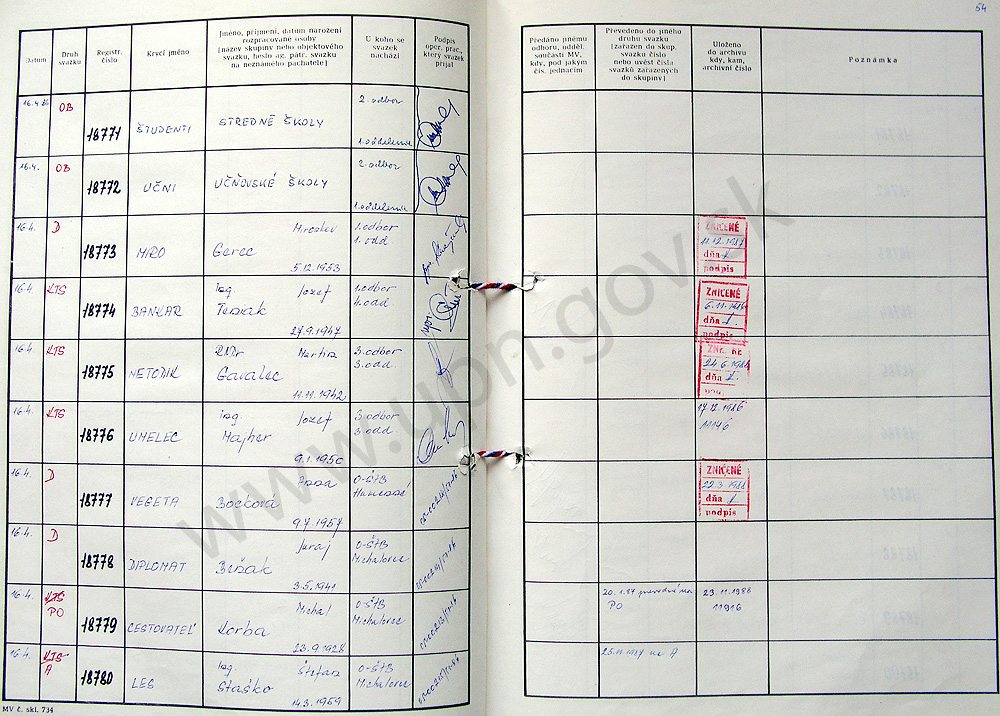 54
Datum
Druh svazku
Registr. číslo
Krycí jméno
Jméno, příjmení, datum narození
rozpracované osoby
[název skupiny nebo objektového
svazku, heslo ag. pátr. svazku
na neznámého pachatele]
U koho se
svazek
nachází
Podpis
oper. prac.,
který svazek
přijal
Předáno jinému
odboru, odděl.
součásti MV,
kdy, pod jakým
čís. jednacím
Převedeno do jiného
druhu svazku
[zařazen do skup.
svazku číslo
nebo uvést čísla
svazků zařazených
do skupiny]
Uloženo
do archivu
kdy, kam,
archivní číslo
Poznámka
16.4.86 OB 18771 ŠTUDENTI STREDNÉ ŠKOLY 2. odbor
1. oddelenie
16.4. OB 18772 UČNI UČŇOVSKÉ ŠKOLY 2. odbor
1. oddelenie
16.4. D 18773 MIRO Gerec Miroslav
5.12.1953
1. odbor
1. odd
ZNIČENÉ
dňa
podpis
16.4. KTS 18774 BANKÁR Ing. Jozef
27.9.1947
1. odbor
4. odd
ZNIČENÉ
dňa
podpis
16.4. KTS 18775 METODIK Martin
Gavalec
11.11.1942
3. odbor
3. odd
dňa
16.4. KTS 18776 UMELEC Ing. Jozef
Majher
9.1.1950
3. odbor
3. odd
17.12.1986
11146
16.4. D 18777 VEGETA
Bočková
9.7.1957
O-ŠTB
Humenné
ZNIČENÉ
22.3.1988
dňa
podpis
16.4. D 18778 DIPLOMAT Juraj
3.5.1941
O-ŠTB
Michalovce
16.4. KTS PO 18779 CESTOVATEĽ Michal
Korba
23.9.1928
O-ŠTB
Michalovce
20.1.87
PO
23.11.1988
11916
16.4. KTS A 18780 LES Ing. Štefan
Staško
14.3.1959
O-ŠTB
Michalovce
25.11.1987 na A
MV č. skl. 734
www.upn.gov.sk